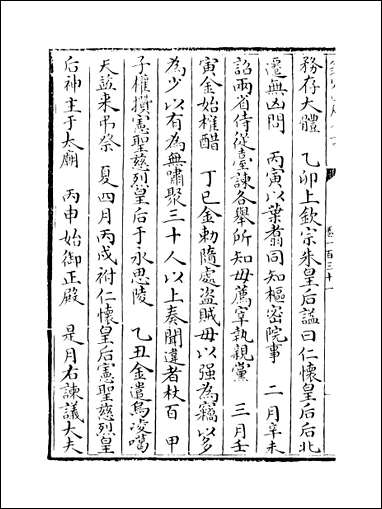 卷一百三十一
務存大體　乙卯上欽宗朱皇后諡曰仁懷皇后后北
遷無凶問　丙寅以葉翥同知樞密院事　二月辛未
詔兩省侍從臺諫各舉所知毋薦宰執親黨　三月壬
寅金始榷醋　丁巳金勅隨處盜賊毋以强為竊以多
為少以有為無嘯聚三十人以上奏聞違者杖百　甲
子權攢憲聖慈烈皇后于永思陵　乙丑金遣烏凌噶
天益來弔祭　夏四月丙戌祔仁懷皇后憲聖慈烈皇
后神主于太廟　丙申始御正殿　是月右諫議大夫